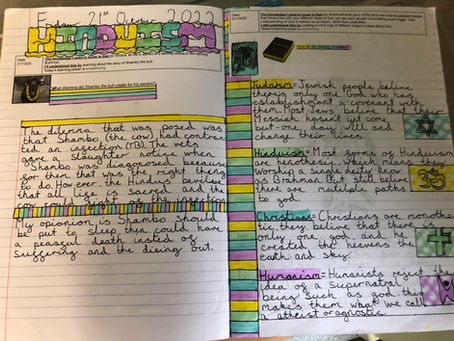 Friday 21st October 202
HINDUISM
I'll understand this by learning about the story of Shambo the bull
What dilemma did Shambo the bull create for his owners?
The dilemma that was posed was
that Shambo (the cow) had contrac
ted an infection (TB). The vets
gave a slaughter notice when
Shambo was diagnosed because
for them that was the right thing
to do. However the Hindus believe
that all life is sacred and the
cow could fight off the infection
My opionion is Shambo should
be put to sleep then could have
a peasful death insted of
suffering and the dieing out.
Judaism= Jewish people believe
theres only one God who
establishment a covenant with
them. Most Jews belive that their
Messiah hasnt yet come
but one day will and
change their lives.
Hinduism= Most forms of Hinduism
are henotheistic which means they
worship a single deity know
as Brahman. But still believe
there are mutilple paths
to god.
Christians= Christians are monothe
tic, they believe that there is
only one god, and he
created the heavens the
earth and sky.
Humanism= Humanists reject the
idea of a supernatral
being such as god this
makes them what we call
a atheist or agnostic.